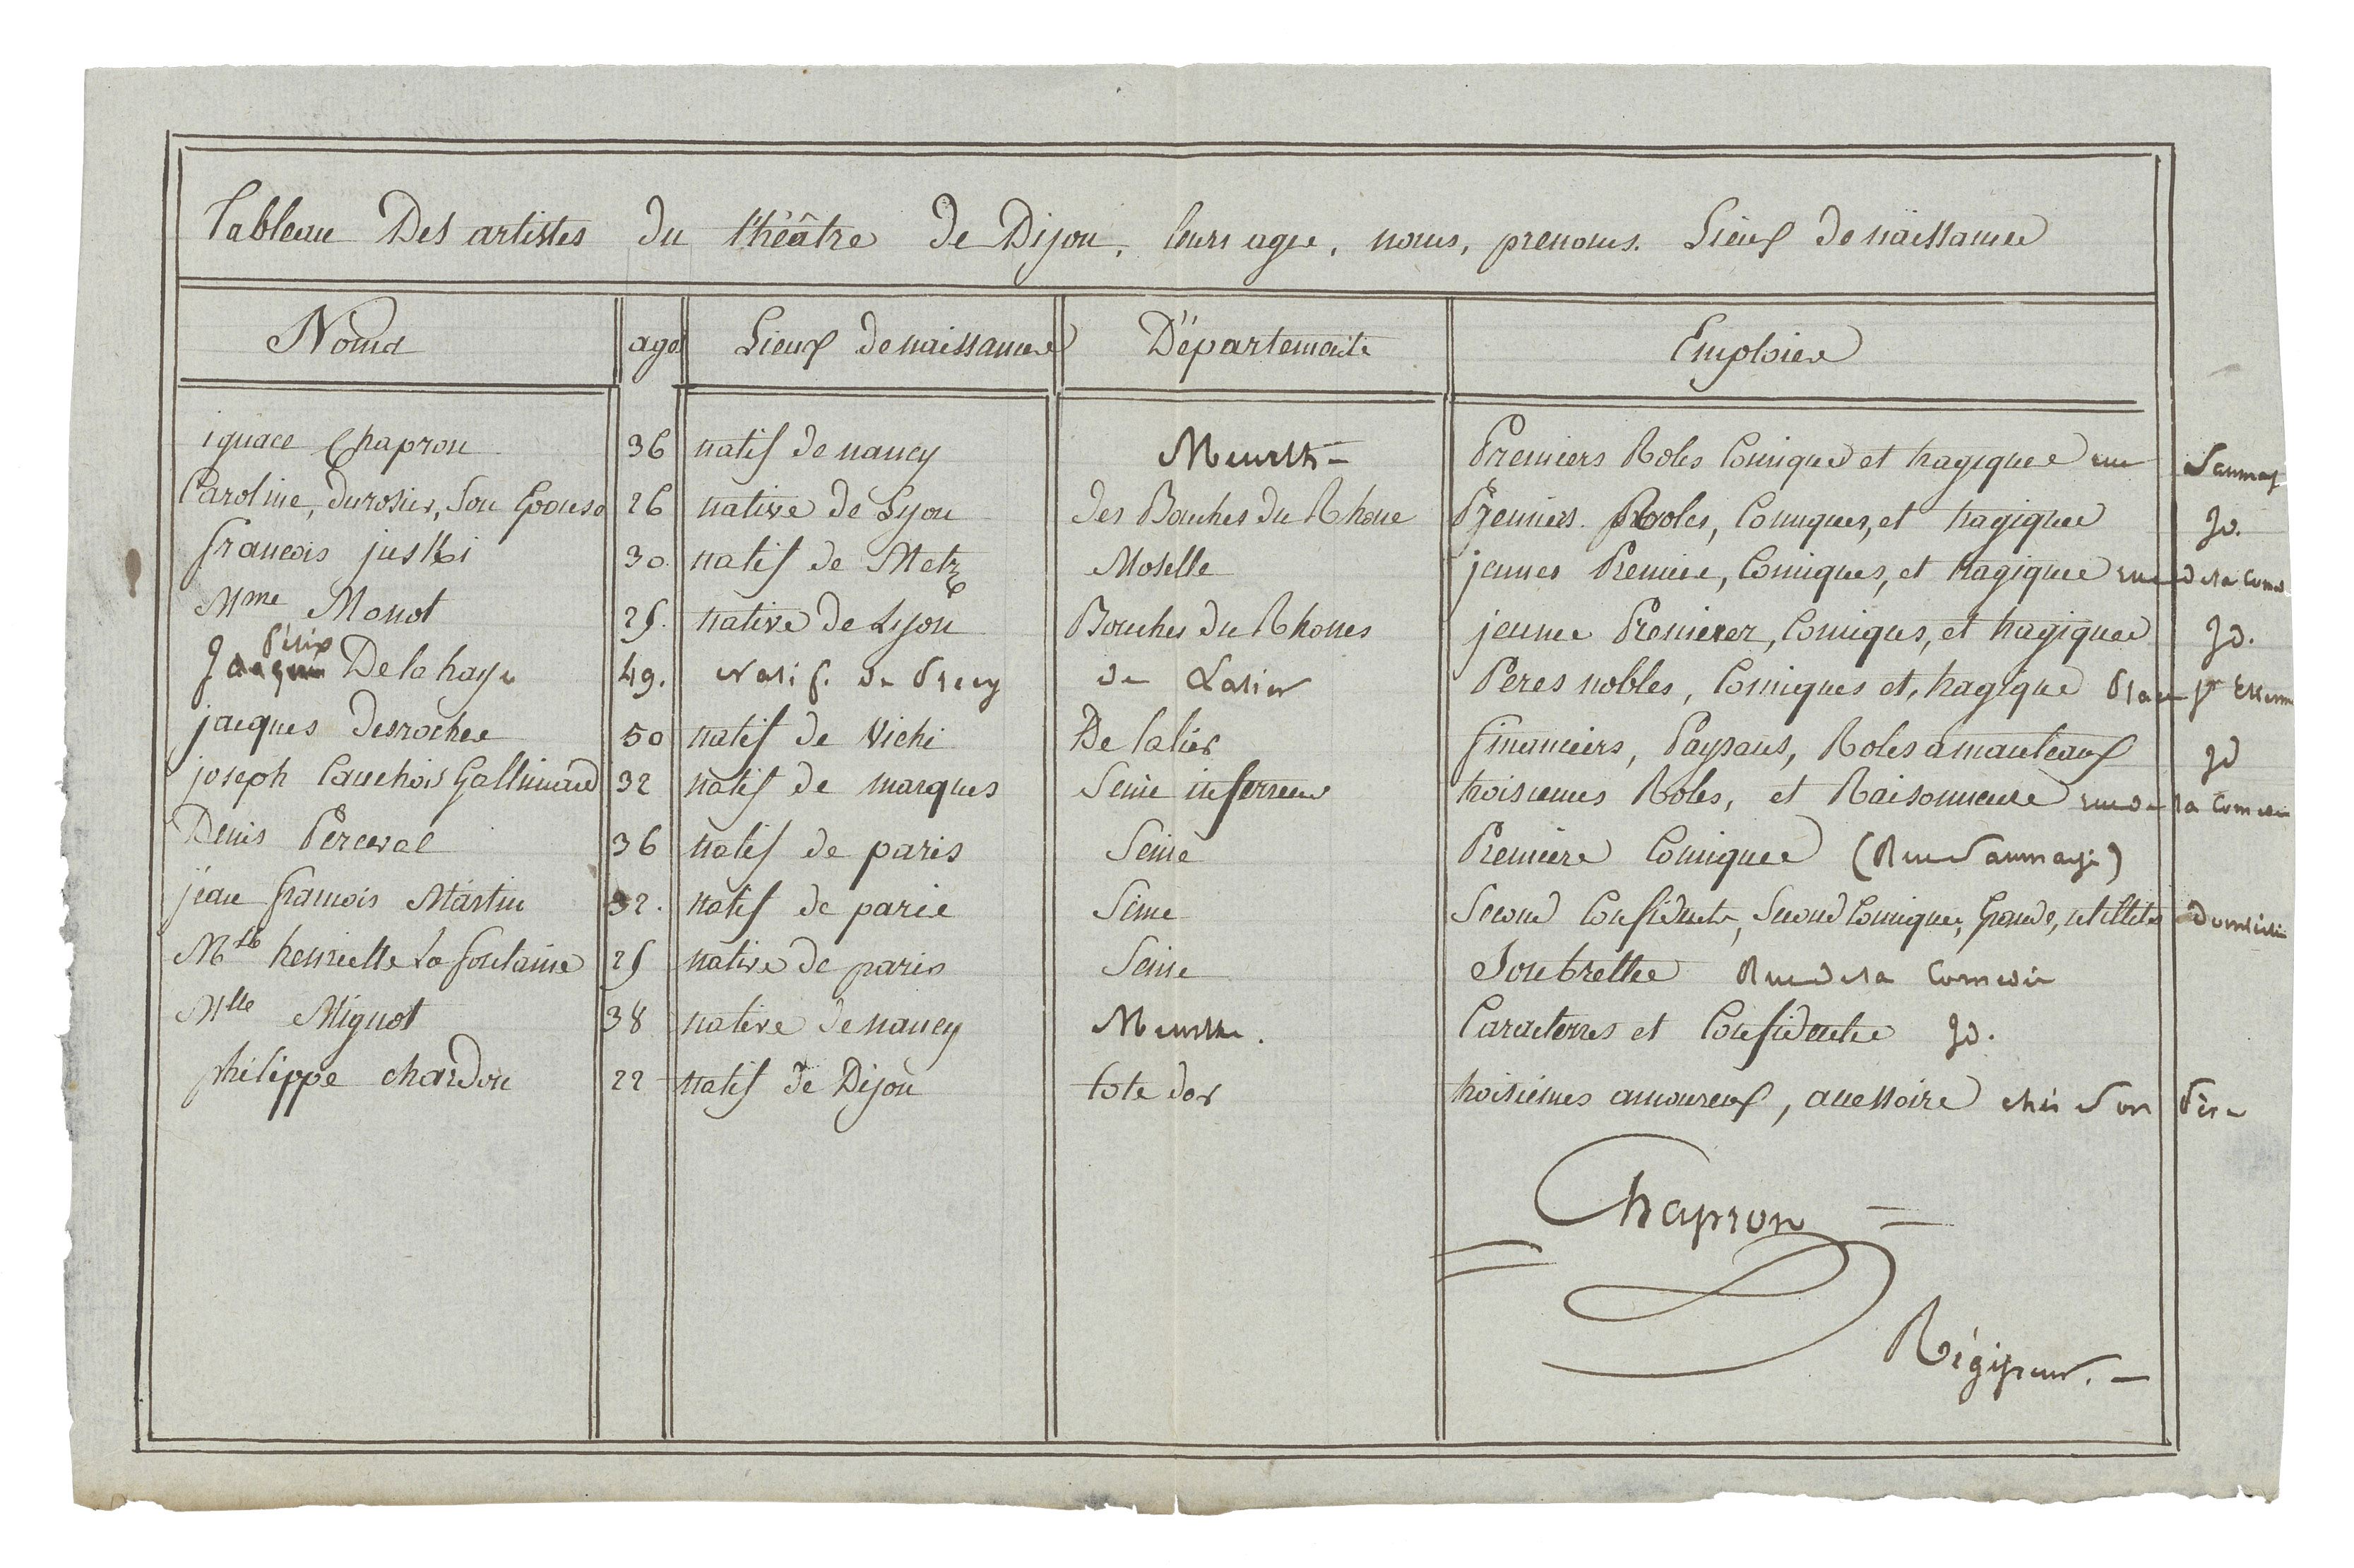 Tableau Des artistes du théâtre de Dijon, leurs ages, noms, prenoms. Lieux de naissances
Noms ages Lieux de naissances Départements Emplois
ignace Chapron 36 natif de nancy Meurth Premiers Roles Comiques et tragiques rue Saumaise
Caroline, durosier, son Epouse 26 native de Lyon des Bouches du Rhone Premiers Roles, Comiques, et tragiques Id.
francois juski 30. natif de Metz Moselle jeunes Premiers, Comiques, et tragiques rue de la Comed
Mme Monot 25. native de Lyon Bouches du Rhones jeunes Premieres, Comiques, et tragiques Id.
félix Delahaye 49. Natif. de Precy de Lalier Peres nobles, Comiques et, tragique Place St Etienne
jacques desroches 50 natif de Vichi De lalier financiers, Paysans, Roles a manteaux Id
joseph Cauchois Gallimard 32 natif de marques Seine inferieur troisiemes Roles, et Raisonneurs rue de la Comedie
Denis Perceval 36 natif de paris Seine Premiers Comiques (Rue Saumaise)
jean francois Martin 32. natif de paris Seine Second Confidents, Second Comiques, Grande, utillites
Mlle henriette La fontaine 25 native de paris Seine Soubrettes Rue de la Comedie
Mlle Mignot 38 native de nancy Meurthe. Caracterres et Confidentes Id.
philippe chardon 22 natif de Dijon Cote dor troisiemes amoureux, accessoire chés Son Père
Chapron
Régisseur.